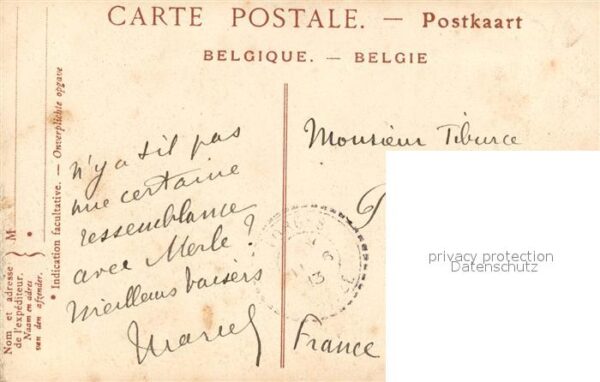 CARTE POSTALE. — Postkaart
BELGIQUE. — BELGIE
Nom et adresse de l'expéditeur.
Naam en adres van den afzender.
M
• Indication facultative. — Onverplichte opgave
n'y a t il pas
une certaine
ressemblance
avec Merle ?
Meilleurs baisers
Marcel
Monsieur Tiburce
G
France
privacy protection
Datenschutz